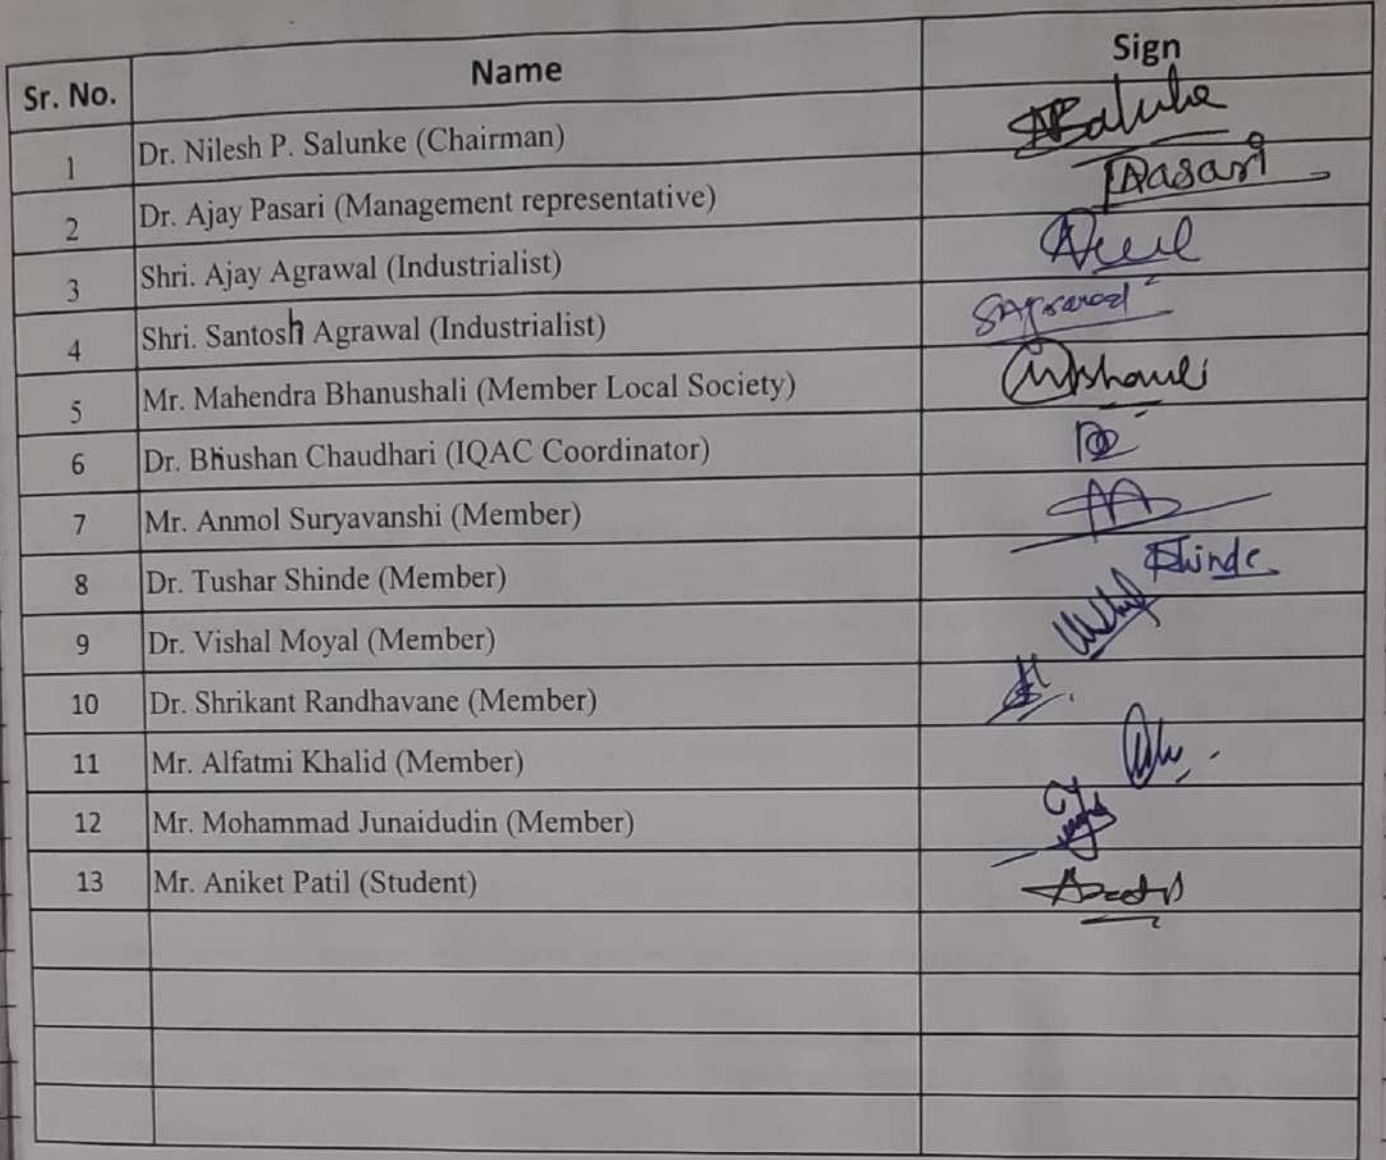 Sr. No. Name Sign
1 Dr. Nilesh P. Salunke (Chairman) Salunke
2 Dr. Ajay Pasari (Management representative) Pasari
3 Shri. Ajay Agrawal (Industrialist)
4 Shri. Santosh Agrawal (Industrialist) SAgrawal
5 Mr. Mahendra Bhanushali (Member Local Society)
6 Dr. Bhushan Chaudhari (IQAC Coordinator)
7 Mr. Anmol Suryavanshi (Member)
8 Dr. Tushar Shinde (Member) Shinde
9 Dr. Vishal Moyal (Member)
10 Dr. Shrikant Randhavane (Member)
11 Mr. Alfatmi Khalid (Member)
12 Mr. Mohammad Junaidudin (Member)
13 Mr. Aniket Patil (Student)